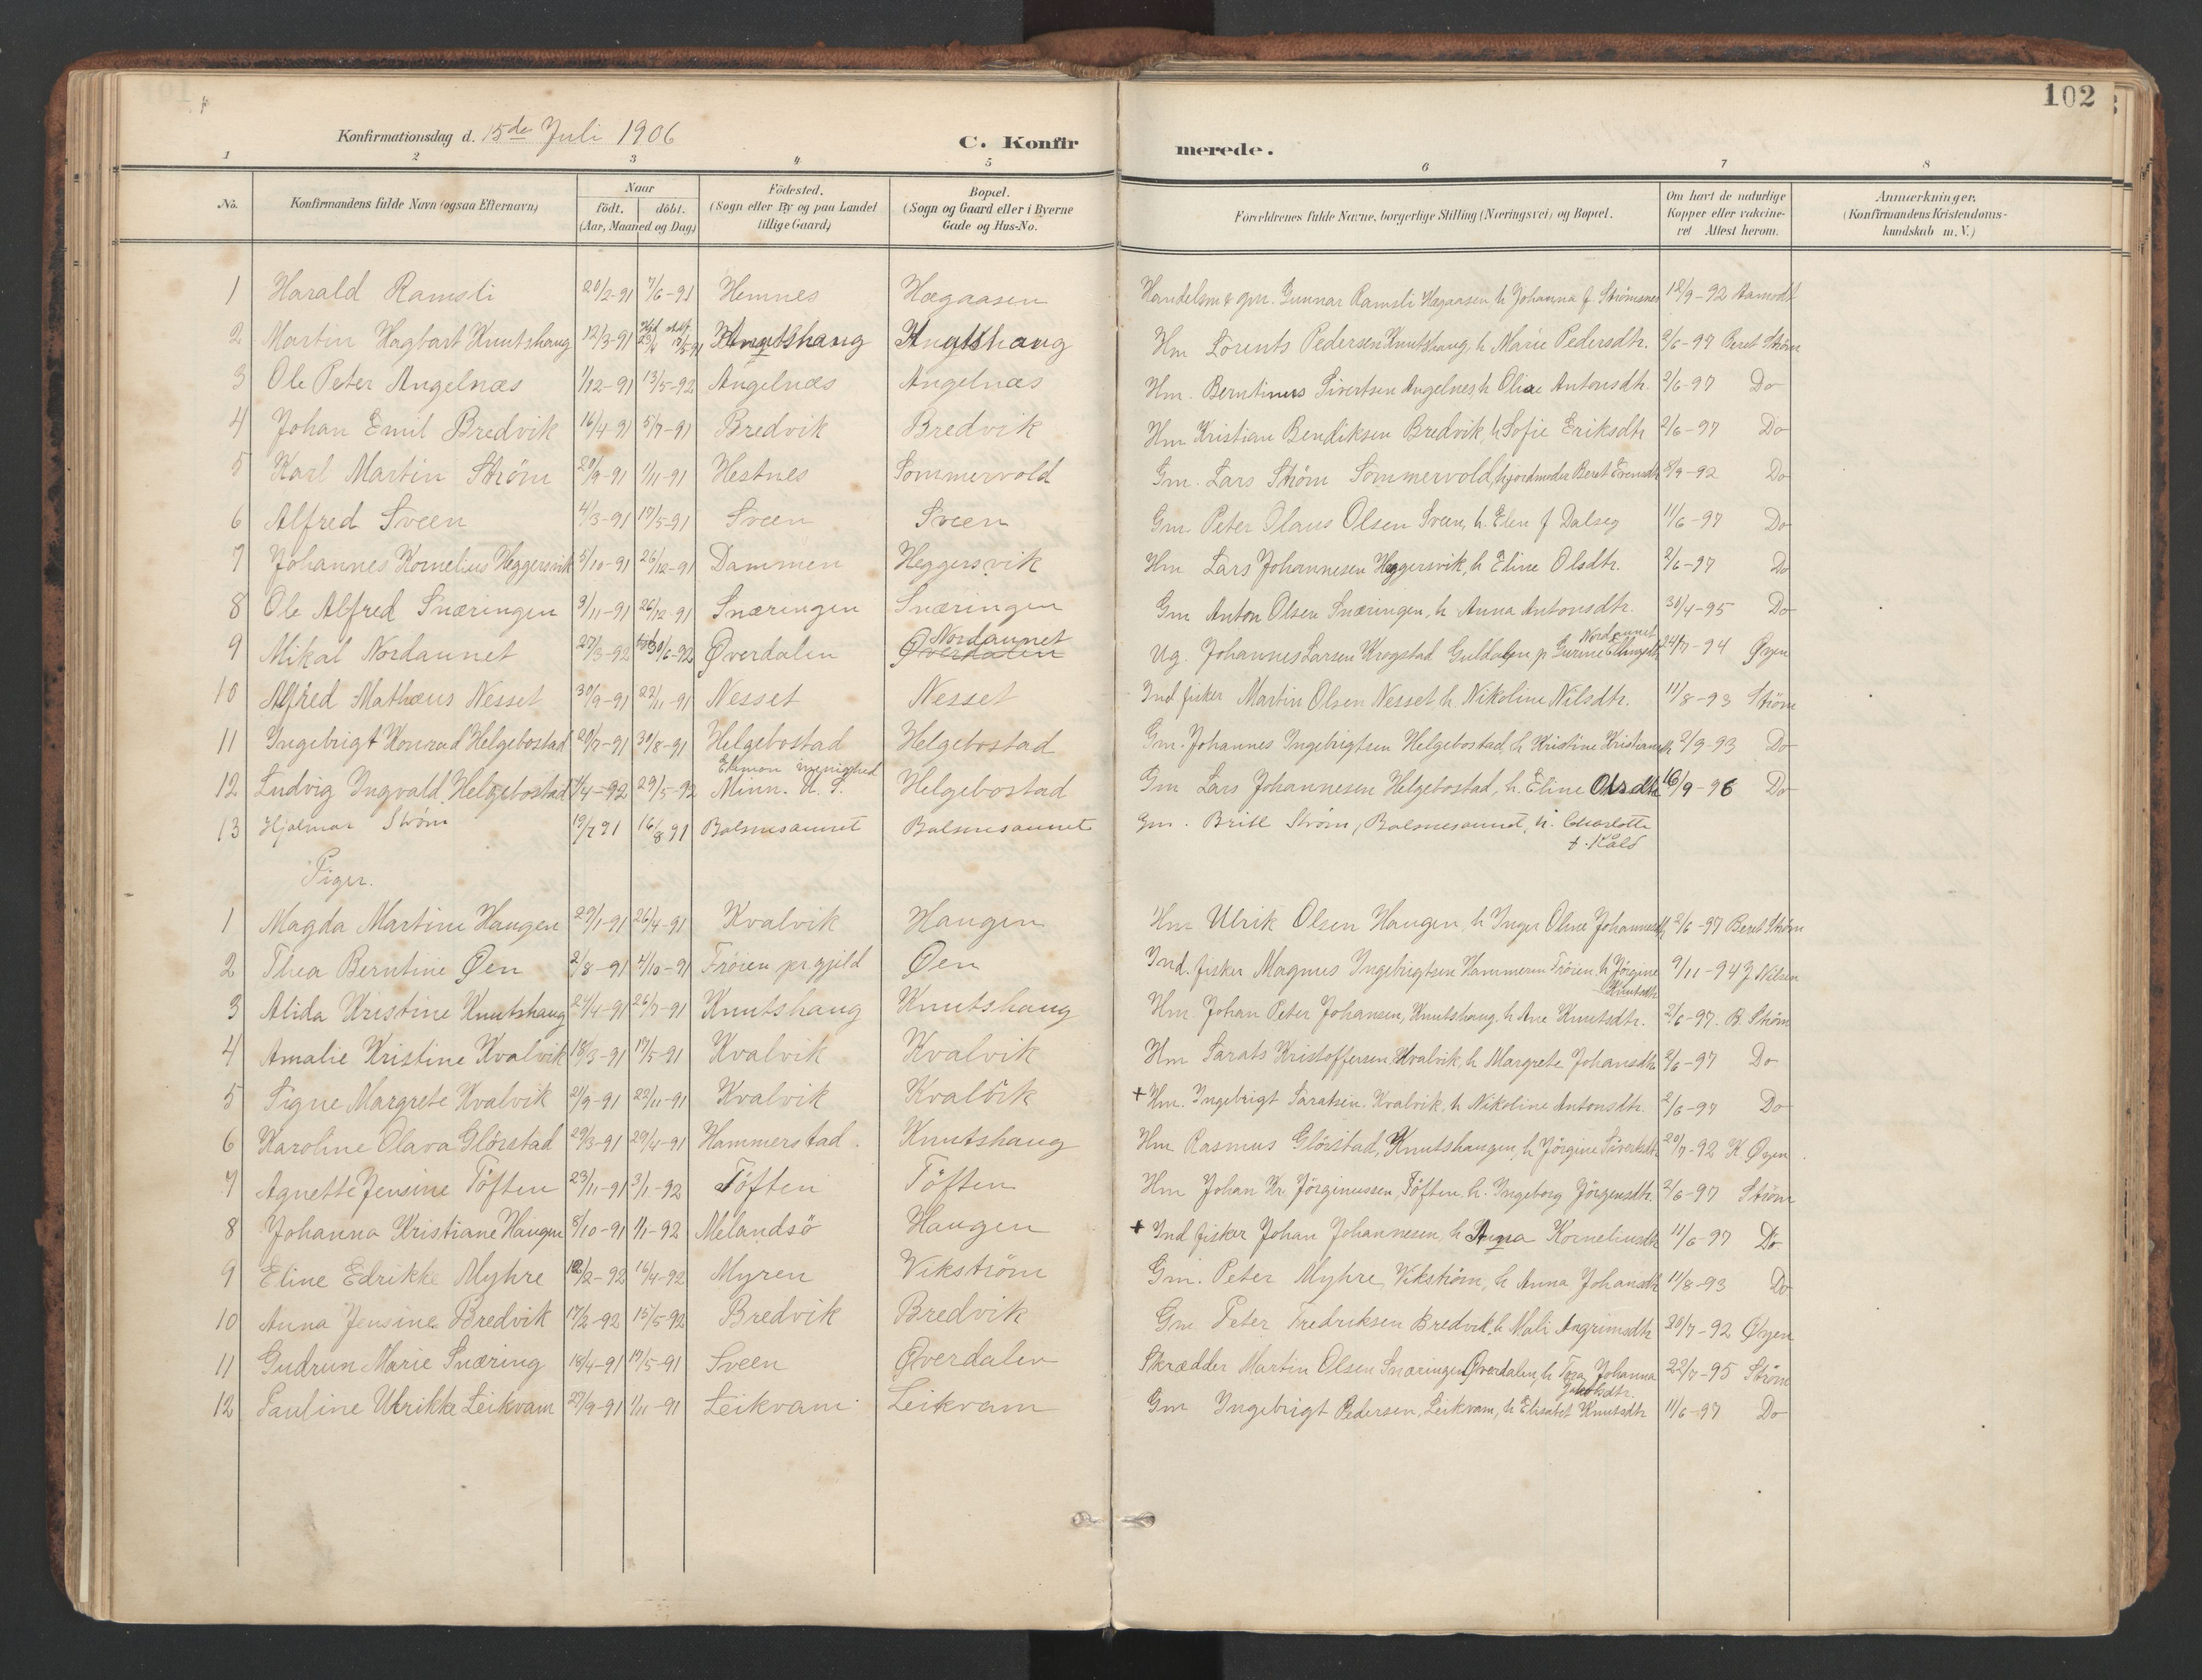 102
Konfirmationsdag d. 15de Juli 1906
C. Konfirmerede.
1 2 3 4 5 6 7 8
No. Konfirmandens fulde Navn (ogsaa Efternavn) Naar födt. döbt. (Aar, Maaned og Dag) Födested. (Sogn eller By og paa Landet tillige Gaard) Bopæl. (Sogn og Gaard eller i Byerne Gade og Hus-No. Forældrenes fulde Navne, borgerlige Stilling (Næringsvei) og Bopæl. Om havt de naturlige Kopper eller vakcineret Attest herom. Anmærkninger. (Konfirmandens Kristendomskundskab m. V.)
1 Harald Ramsli 20/2-91 7/6-91 Hemnes Hægaasen Handelsm & gm. Gunnar Ramsli Hægaasen h Johanna f. Strömsnes 12/9-92
2 Martin Hagbart Knutshaug 12/3-91 Knutshaug Knutshaug Hm Lorents Pedersen Knutshaug, h Marie Pedersdtr. 2/6-97 Beret Ström
3 Ole Peter Angelnæs 1/12-91 13/5-92 Angelnæs Angelnæs Hm. Berntinus Sivertsen Angelnes, h Oline Antonsdtr. 2/6-97 Do
4 Johan Emil Bredvik 16/4-91 5/7-91 Bredvik Bredvik Hm Kristian Bendiksen Bredvik, h Sofie Eriksdtr 2/6-97 Do
5 Karl Martin Ström 20/9-91 1/11-91 Hestnes Sommervold Gm. Lars Ström Sommervold, h jordmoder Beret Evensdtr 8/9-92 Do
6 Alfred Sveen 4/3-91 17/5-91 Sveen Sveen Gm. Peter Olaus Olsen Sveen, h. Elen f Dalseg 11/6-97 Do
7 Johannes Kornelius Heggersvik 5/10-91 26/12-91 Dammen Heggersvik Hm Lars Johannesen Heggersvik, h Eline Olsdtr. 2/6-97 Do
8 Ole Alfred Snæringen 9/11-91 26/12-91 Snæringen Snæringen Gm Anton Olsen Snæringen, h Anna Antonsdtr. 30/4-95 Do
9 Mikal Nordaunet 27/3-92 30/6-92 Øverdalen Øverdalen Nordaunet Ug. Johannes Larsen Krogstad Guldalen p Gurine Nordaunet 24/7-94 Øyen
10 Alfred Mathæus Nesset 30/9-91 22/11-91 Nesset Nesset Ind fisker Martin Olsen Nesset h. Nikoline Nilsdtr. 11/8-93 Ström
11 Ingebrigt Konrad Helgebostad 20/7-91 30/8-91 Helgebostad Helgebostad Gm. Johannes Ingebrigtsen Helgebostad, h Kristine Kristiansdtr 2/9-93 Do
12 Ludvig Ingvald Helgebostad 7/4-92 29/5-92 menighed Minn. U. S. Helgebostad Gm Lars Johannesen Helgebostad, h. Eline Olsdtr 16/9-96 Do
13 Hjalmar Ström 19/7 91 16/8 91 Balsnesaunet Balsnesaunet Gm. Ström, Balsnesaunet, h. Charlotte
Piger.
1 Magda Martine Haugen 29/1-91 26/4-91 Kvalvik Haugen Hm Ulrik Olsen Haugen, h Inger Oline Johannesdtr 2/6-97 Beret Ström
2 Thea Berntine Øen 2/8-91 4/10-91 Fröien prgjeld Øen Ind. fisker Magnus Ingebrigtsen Hammeren Fröien, h Jörgine Knutsdtr 9/11-94 J Nilsen
3 Alida Kristine Knutshaug 24/4-91 26/7-91 Knutshaug Knutshaug Hm. Johan Peter Johansen, Knutshaug. h Ane Knutsdtr. 2/6-97. B. Ström
4 Amalie Kristine Kvalvik 18/3-91 17/5-91 Kvalvik Kvalvik Hm Sarats Kristoffersen, Kvalvik, h Margrete Johansdtr 2/6-97 Do
5 Signe Margrete Kvalvik 21/9-91 22/11-91 Kvalvik Kvalvik + Hm. Ingebrigt Saratsen. Kvalvik, h Nikoline Antonsdtr. 2/6-97 Do
6 Karoline Olava Glörstad 29/3-91 29/4-91 Hammerstad. Knutshaug Hm Rasmus Glörstad, Knutshaugen, h Jörgine Sivertsdtr 20/7-92 K. Øyen
7 Agnette Jensine Töften 23/11-91 3/1-92 Töften Töften Hm Johan Kr. Jörginussen, Töften, h. Ingeborg Jörgensdtr. 2/6-97 Ström
8 Johanna Kristiane Haugen 8/10-91 1/1-92 Melandsö Haugen + Ind fisker Johan Johannesen, h Anna Korneliusdtr 11/6-97 Do
9 Eline Edrikke Myhre 12/2-92 16/4-92 Myren Vikström Gm. Peter Myhre, Vikström, h Anna Johansdtr 11/8-93 Do
10 Anna Jensine Bredvik 17/2-92 15/5-92 Bredvik Bredvik Gm Peter Fredriksen Bredvik, h Mali Angrimsdtr 20/7-92 Øyen
11 Gudrun Marie Snæring 18/4-91 17/5-91 Sveen Øverdalen Skrædder Martin Olsen Snæringen, Øverdalen, h Johanna Jakobsdtr. 22/7-95 Ström
12 Pauline Ulrikke Leikvam 27/9-91 1/11-91 Leikvam Leikvam Gm Ingebrigt Pedersen, Leikvam, h Elisabet Knutsdtr 11/6-97 Do